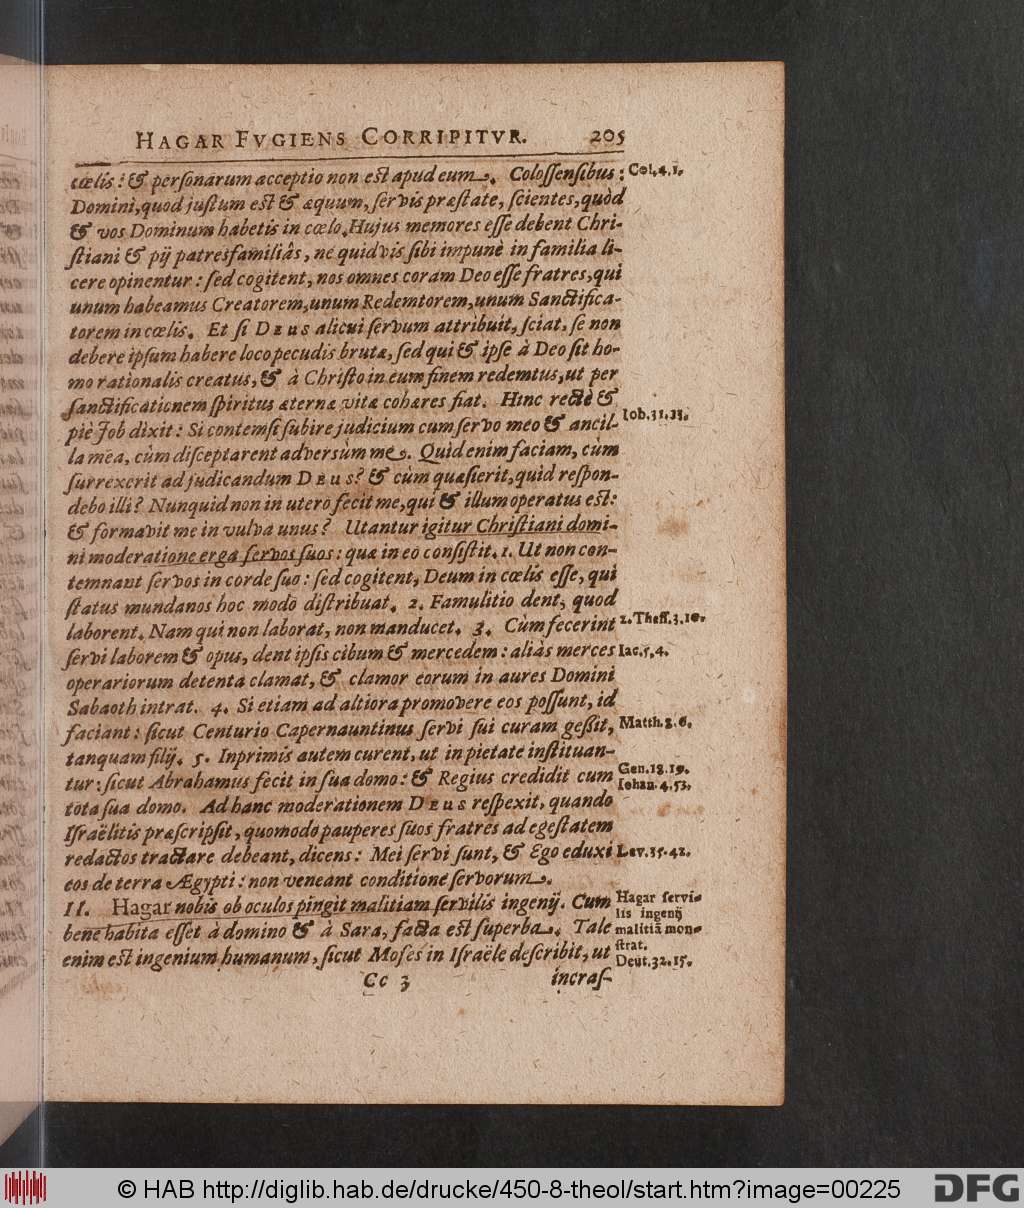 HAGAR FVGIENS CORRIPITVR. 205
cœlis: & personarum acceptio non est apud eum. Colossensibus: Col. 4. 1.
Domini, quod justum est & æquum, servis præstate, scientes, quòd
& vos Dominum habetis in cœlo. Hujus memores esse debent Chri-
stiani & pij patresfamiliâs, ne quidvis sibi impunè in familia li-
cere opinentur: sed cogitent, nos omnes coram Deo esse fratres, qui
unum habeamus Creatorem, unum Redemtorem, unum Sanctifica-
torem in cœlis. Et si DEUS alicui servum attribuit, sciat, se non
debere ipsum habere loco pecudis brutæ, sed qui & ipse à Deo sit ho-
mo rationalis creatus, & à Christo in eum finem redemtus, ut per
sanctificationem spiritus æternæ vitæ cohæres fiat. Hinc rectè &
piè Job dixit: Si contemsi subire judicium cum servo meo & ancil- Iob. 31. 13.
la mea, cùm disceptarent adversùm me. Quid enim faciam, cùm
surrexerit ad judicandum DEUS? & cùm quæsierit, quid respon-
debo illi? Nunquid non in utero fecit me, qui & illum operatus est:
& formavit me in vulva unus? Utantur igitur Christiani domi-
ni moderatione erga servos suos: quæ in eo consistit. 1. Ut non con-
temnant servos in corde suo: sed cogitent, Deum in cœlis esse, qui
status mundanos hoc modo distribuat. 2. Famulitio dent, quod
laborent. Nam qui non laborat, non manducet. 3. Cùm fecerint 2. Thess. 3. 10.
servi laborem & opus, dent ipsis cibum & mercedem: aliàs merces Iac. 5, 4.
operariorum detenta clamat, & clamor eorum in aures Domini
Sabaoth intrat. 4. Si etiam ad altiora promovere eos possunt, id
faciant: sicut Centurio Capernauntinus servi sui curam gessit, Matth. 8. 6.
tanquam filij. 5. Inprimis autem curent, ut in pietate instituan-
tur: sicut Abrahamus fecit in sua domo: & Regius credidit cum Gen. 18. 19. Iohan. 4. 53.
tota sua domo. Ad hanc moderationem DEUS respexit, quando
Israëlitis præscripsit, quomodo pauperes suos fratres ad egestatem
redactos tractare debeant, dicens: Mei servi sunt, & Ego eduxi Lev. 35. 42.
eos de terra Ægypti: non veneant conditione servorum.
II. Hagar nobis ob oculos pingit malitiam servilis ingenij. Cum
bene habita esset à domino & à Sara, facta est superba. Tale
enim est ingenium humanum, sicut Moses in Israële describit, ut
Hagar servi-
lis ingenij
malitiã mon-
strat.
Deut. 32. 15.
Cc 3 incras-
© HAB http://diglib.hab.de/drucke/450-8-theol/start.htm?image=00225 DFG